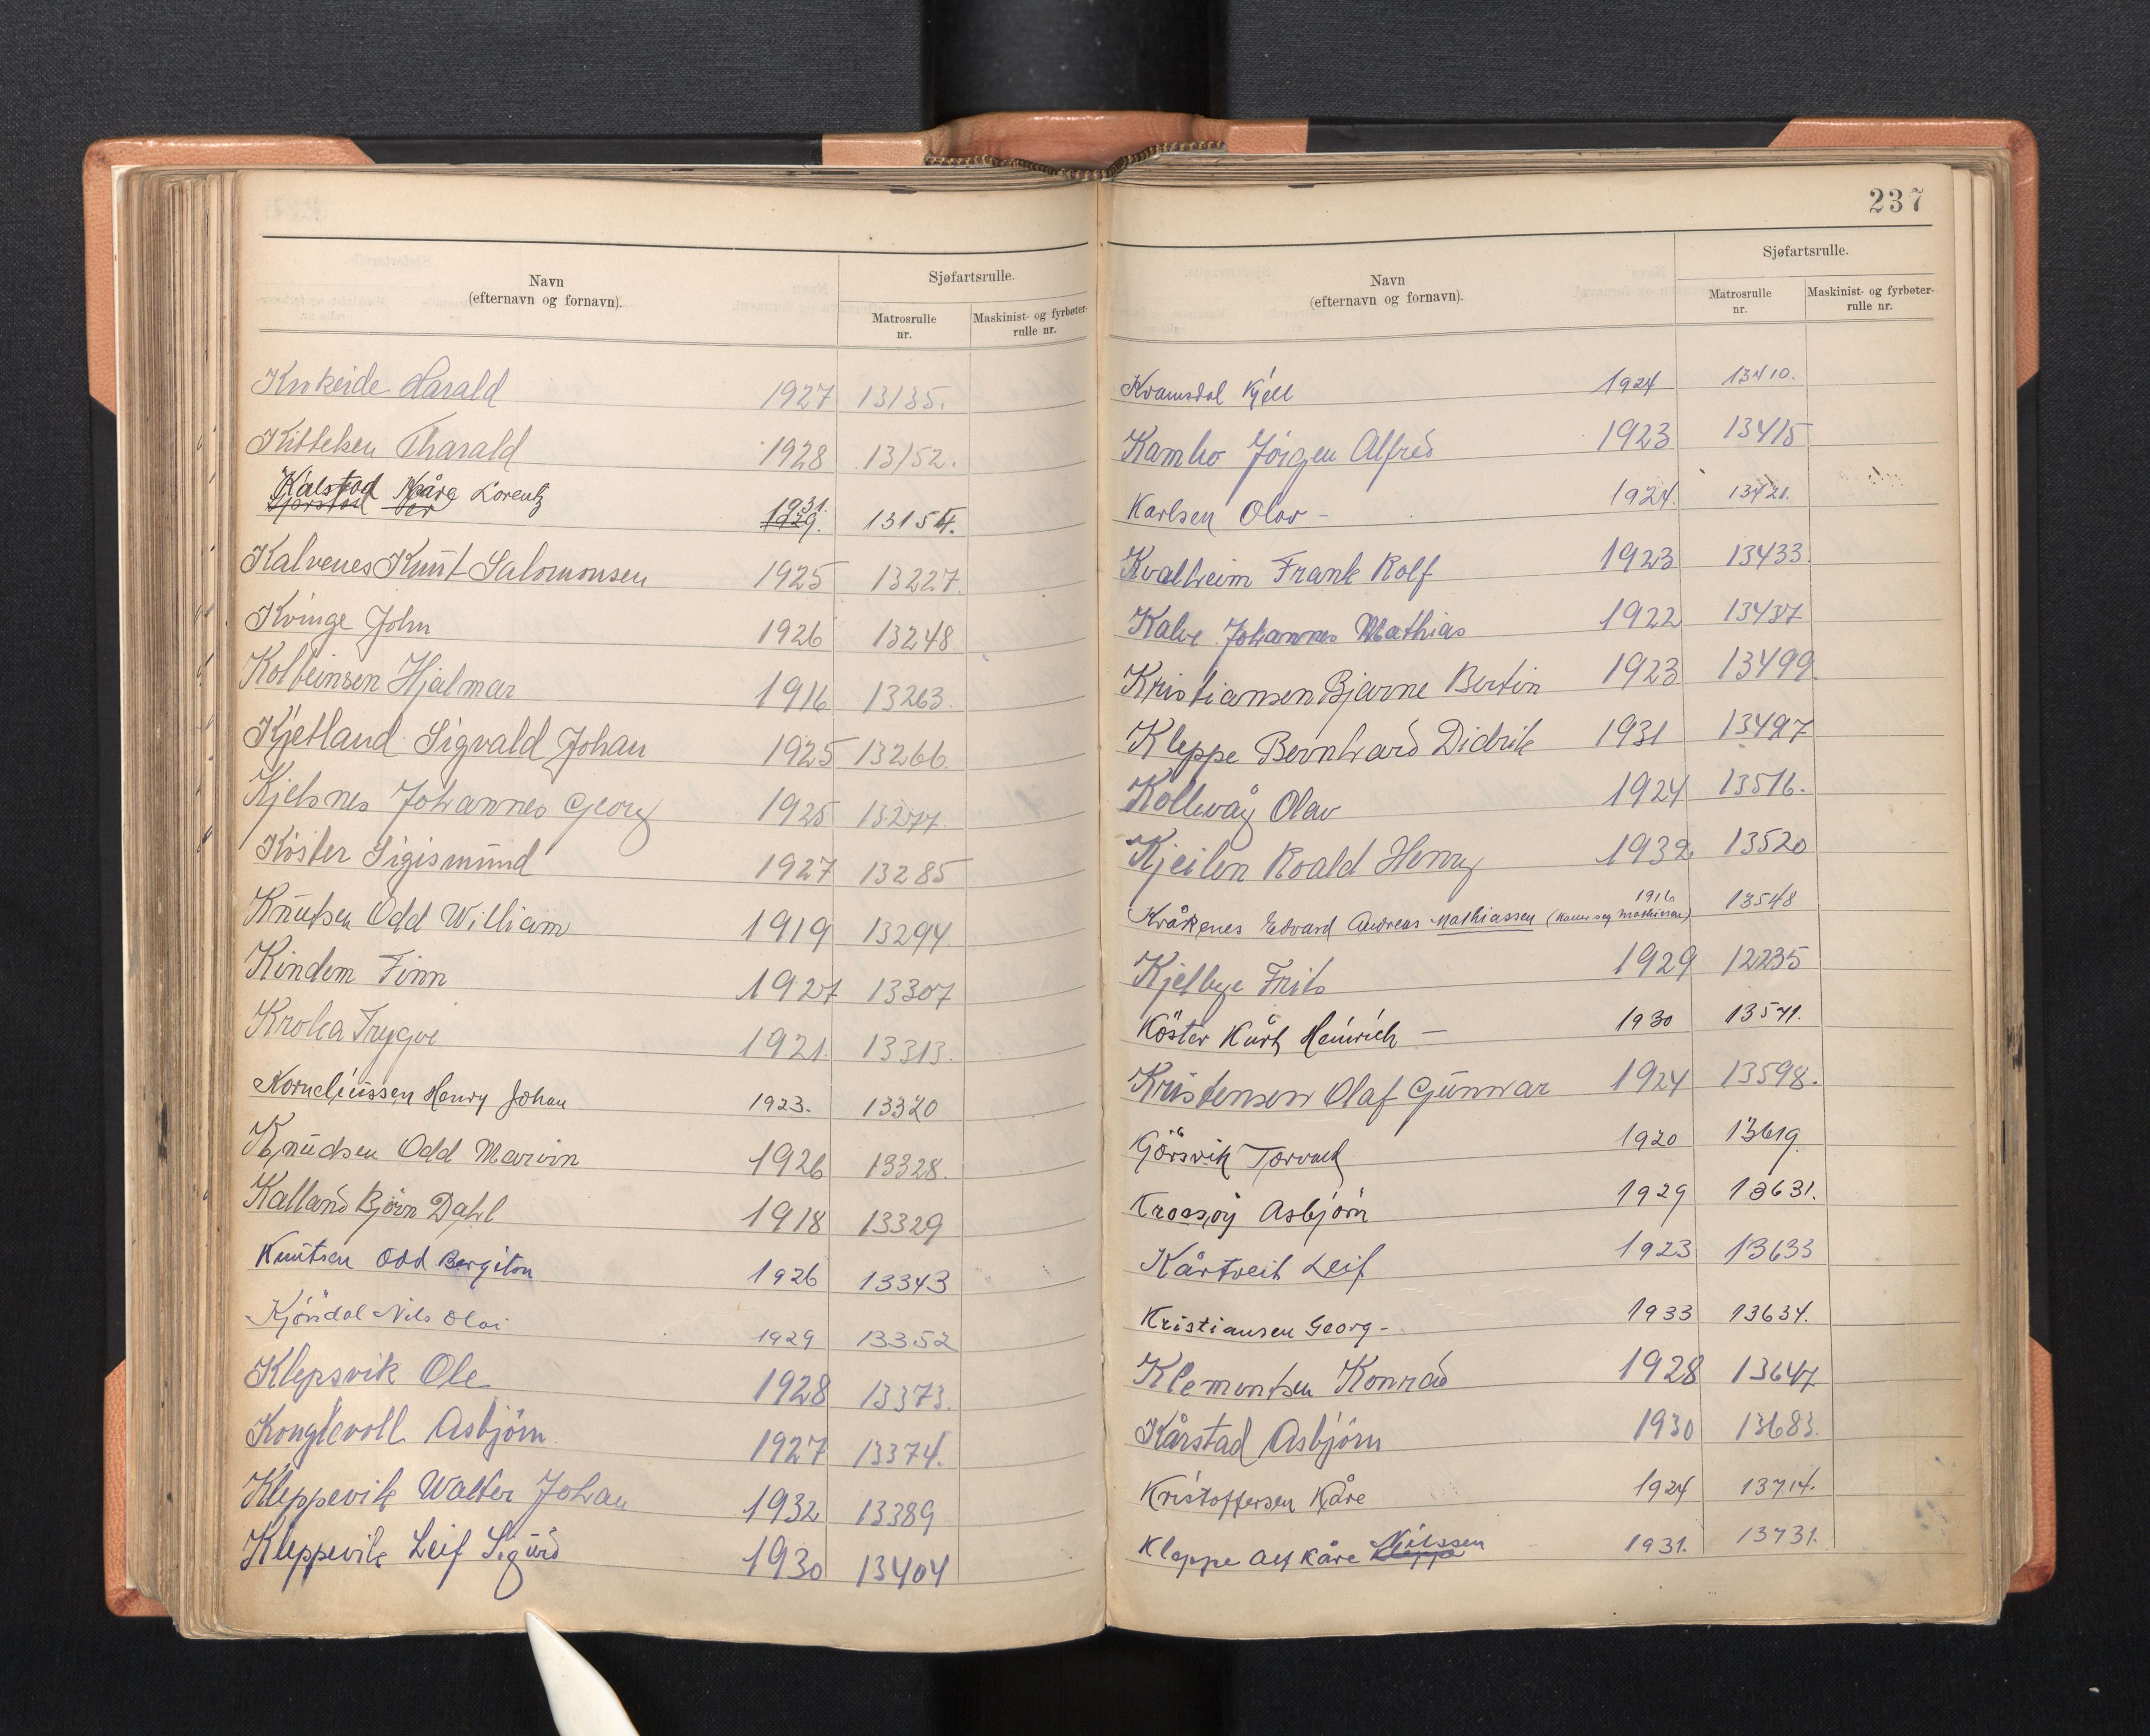 Navn
(efternavn og fornavn).
Sjøfartsrulle.
Matrosrulle
nr.
Maskinist- og fyrbøter-
rulle nr.
Knokeide Harald 1927 13135.
Kittelsen Tharald 1928 13152.
Kålstad Kåre Lorentz 1931.
1929. 13154.
Kalvenes Knut Salomonsen 1925 13227.
Kvinge John 1926 13248.
Kolbeinsen Hjalmar 1916 13263.
Kjetland Sigvald Johan 1925 13266.
Kjelsnes Johannes Georg 1925 13277.
Köster Sigismund 1927 13285
Knutsen Odd William 1919 13294
Kindem Finn 1927 13307
Kroka Trygve 1921. 13313.
Korneliussen Henry Johan 1923. 13320
Knudsen Odd Marvin 1926 13328.
Kalland Björn Dahl 1918 13329
Knutsen Odd Bergiton 1926 13343
Kjöndal Nils Olai 1929 13352
Klepsvik Ole 1928 13373.
Konglevoll Asbjörn 1927 13374.
Kleppevik Walter Johan 1932 13389
Kleppevik Leif Sigurd 1930 13404
237
Navn
(efternavn og fornavn).
Sjøfartsrulle.
Matrosrulle
nr.
Maskinist- og fyrbøter-
rulle nr.
Kvamsdal Kjell 1924 13410.
Kambo Jörgen Alfred 1923 13415
Karlsen Olav - 1924. 13421.
Kvalheim Frank Rolf 1923 13433.
Kalve Johannes Mathias 1922 13437
Kristiansen Bjarne Bertin 1923 13499.
Kleppe Bernhard Didrik 1931 13497
Kollevåg Olav 1924 13516.
Kjeilen Roald Henry 1932 13520
Kråkenes Edvard Andreas Mathiassen (kaller seg Mathiesen) 1916 13548
Kjelbye Frits 1929 12235
Köster Kurt Heinrich — 1930 13571.
Kristensen Olaf Gunnar 1924 13598.
Görsvik Torvald 1920 13619.
Krossöy Asbjörn 1929 13631.
Kårtveit Leif 1923 13633
Kristiansen Georg - 1933 13634.
Klementsen Konrad 1928 13647
Kårstad Asbjörn 1930 13683.
Kristoffersen Kåre 1924 13714.
Kleppe Alf Kåre Kleppe Nilssen 1931. 13731.